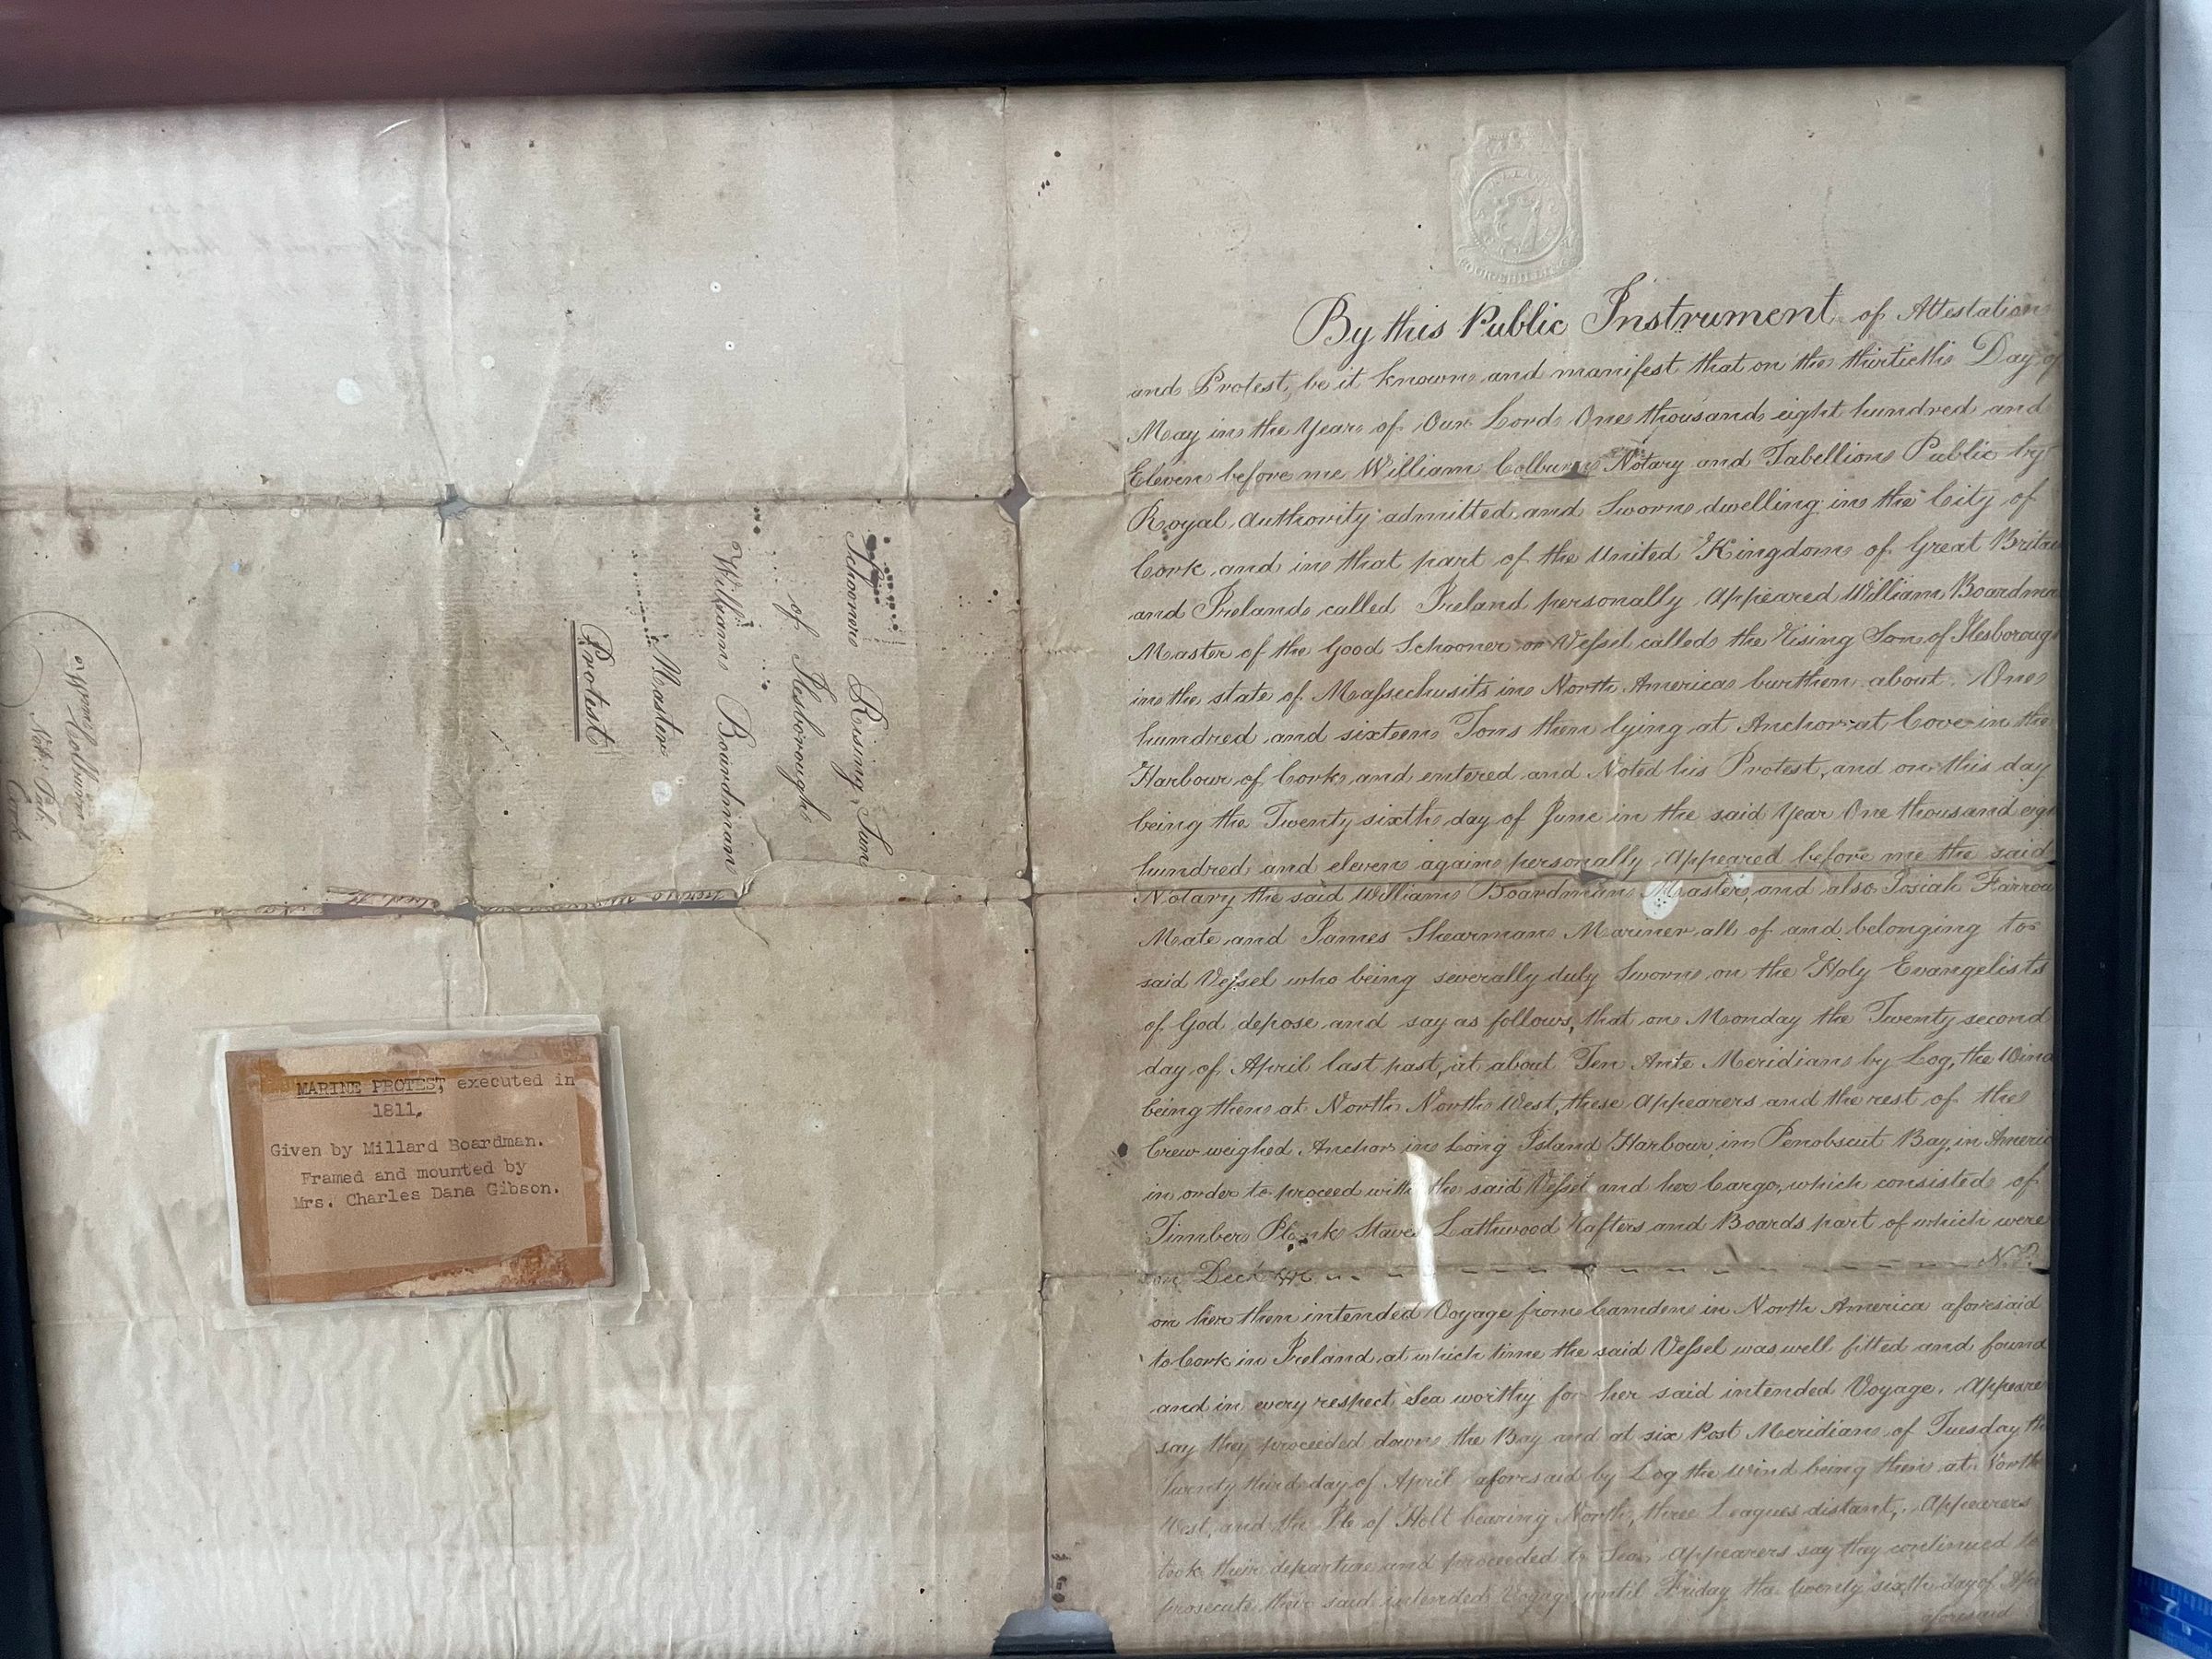 Schooner Rising Sun
of Ilesborough
William Boardman
Master
Protest
Wm. Colburn
Not. Pub.
Cork
MARINE PROTEST, executed in
1811,
Given by Millard Boardman.
Framed and mounted by
Mrs. Charles Dana Gibson.
IRELAND
FOUR SHILLINGS
By this Public Instrument of Attestation
and Protest, be it known and manifest that on the thirtieth Day of
May in the Year of Our Lord One thousand eight hundred and
Eleven before me William Colburn Notary and Tabellion Public by
Royal Authority admitted and Sworn dwelling in the City of
Cork and in that part of the United Kingdom of Great Britain
and Ireland called Ireland personally Appeared William Boardman
Master of the Good Schooner or Vessel called the Rising Son of Ilesborough
in the state of Massechusits in North America burthen about One
hundred and sixteen Tons then lying at Anchor at Cove in the
Harbour of Cork and entered and Noted his Protest, and on this day
being the Twenty sixth day of June in the said Year One thousand eigh
hundred and eleven again personally Appeared before me the said
Notary the said William Boardman Master, and also Josiah Farrow
Mate and James Shearman Mariner all of and belonging to
said Vessel who being severally duly Sworn on the Holy Evangelists
of God depose and say as follows, that on Monday the Twenty second
day of April last past, at about Ten Ante Meridian by Log, the Wind
being then at North North West, these Appearers and the rest of the
Crew weighed Anchor in Long Island Harbour in Penobscut Bay, in Americ
in order to proceed with the said Vessel and her Cargo, which consisted of
Timber Plank Staves Lathwood Rafters and Boards part of which were
on Deck N.P.
on her then intended Voyage from Camden in North America aforesaid
to Cork in Ireland, at which time the said Vessel was well fitted and found
and in every respect Sea worthy for her said intended Voyage. Appearers
say they proceeded down the Bay and at six Post Meridian of Tuesday the
twenty third day of April aforesaid by Log the Wind being then at North
West, and the Ile of Holt bearing North, three Leagues distant, Appearers
took their departure and proceeded to Sea, Appearers say they continued to
prosecute their said intended Voyage until Friday the twenty sixth day of Apr
aforesaid